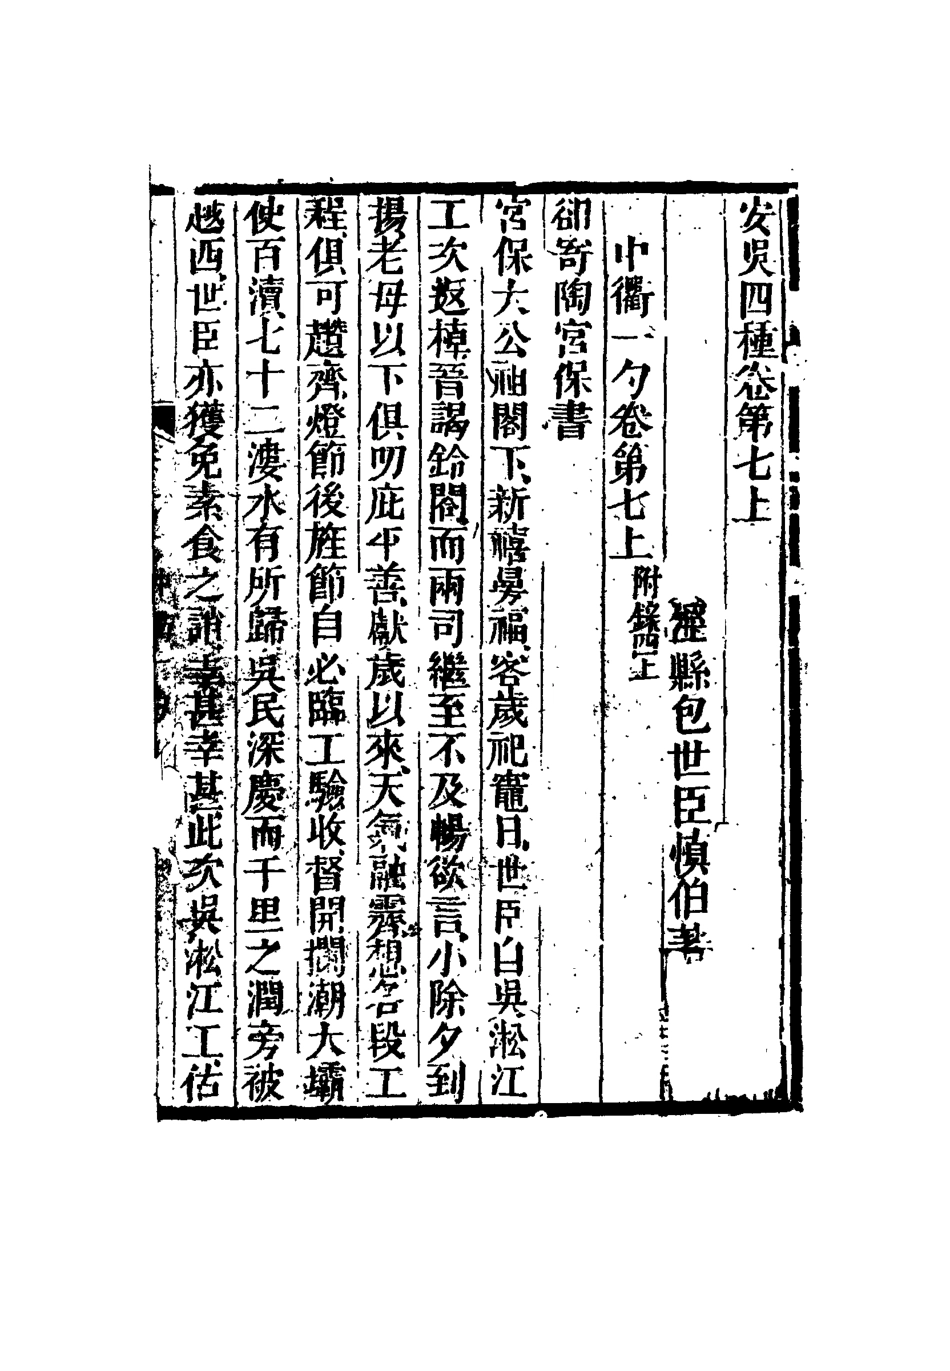 安吳四種卷第七上
涇縣包世臣慎伯著
中衢一勺卷第七上 附錄四上
卻寄陶宮保書
宮保大公祖閣下、新禧昜福、客歲祀竈日、世臣自吳淞江
工次返棹、晉謁鈴閣、而兩司繼至、不及暢欲言、小除夕到
揚、老母以下俱叨庇平善、獻歲以來、天氣融霽、想各段工
程、俱可趲齊、燈節後旌節自必臨工驗收、督開攔潮大壩
使百瀆七十二漊水有所歸、吳民深慶、而千里之潤旁被
越西、世臣亦獲免素食之誚、幸甚幸甚、此次吳淞江工、估